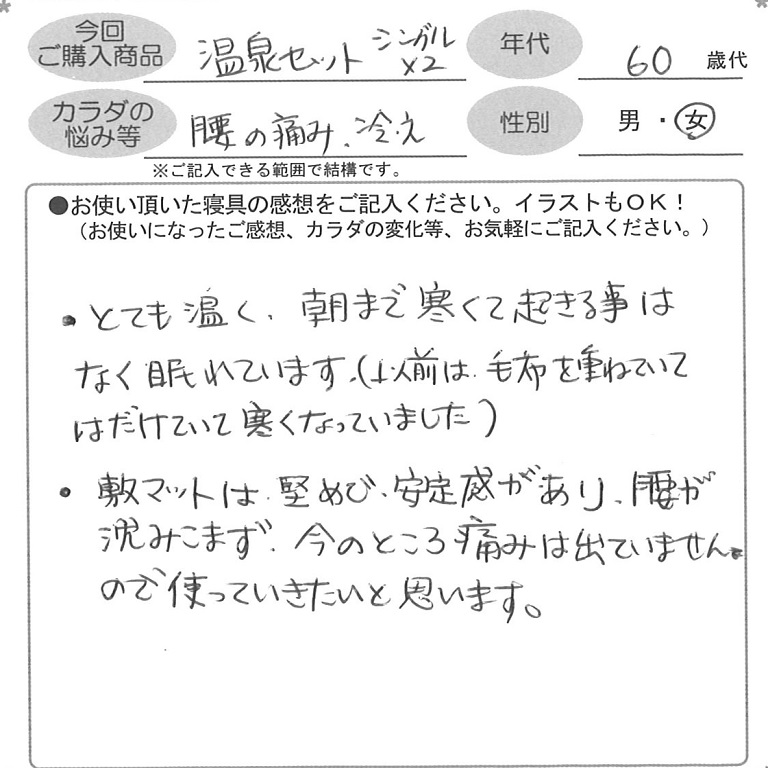 今回
ご購入商品
温泉セット シングル
×2
年代
60 歳代
カラダの
悩み等
腰の痛み、冷え
性別
男・女
※ご記入できる範囲で結構です。
●お使い頂いた寝具の感想をご記入ください。イラストもOK！
（お使いになったご感想、カラダの変化等、お気軽にご記入ください。）
・とても温く、朝まで寒くて起きる事は
なく眠れています。(以前は、毛布を重ねていて
はだけていて寒くなっていました)
・敷マットは、堅めで、安定感があり、腰が
沈みこまず、今のところ痛みは出ていません。
ので使っていきたいと思います。